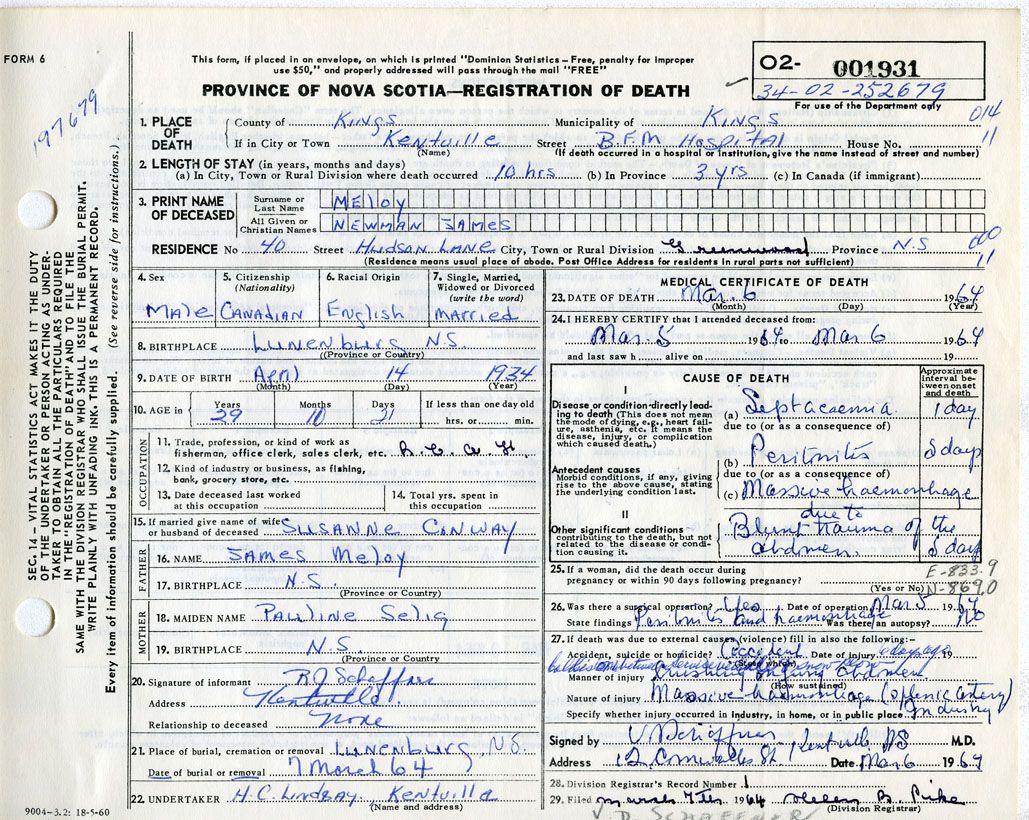 FORM 6
197679
This form, if placed in an envelope, on which is printed "Dominion Statistics – Free, penalty for improper
use $50," and properly addressed will pass through the mail "FREE"
PROVINCE OF NOVA SCOTIA—REGISTRATION OF DEATH
O2- 001931
34-02-252679
For use of the Department only
014
11
1. PLACE OF DEATH
County of Kings Municipality of Kings
If in City or Town Kentville Street B.F.M Hospital House No.
(Name) (If death occurred in a hospital or institution, give the name instead of street and number)
2. LENGTH OF STAY (in years, months and days)
(a) In City, Town or Rural Division where death occurred 10 hrs (b) In Province 3 yrs (c) In Canada (if immigrant)
3. PRINT NAME OF DECEASED
Surname or Last Name MEloy
All Given or Christian Names NEWMAN JAMES
RESIDENCE No 40 Street Hudson Lane City, Town or Rural Division Greenwood Province N.S
000
11
(Residence means usual place of abode. Post Office Address for residents in rural parts not sufficient)
4. Sex
Male
5. Citizenship
(Nationality)
Canadian
6. Racial Origin
English
7. Single, Married,
Widowed or Divorced
(write the word)
Married
8. BIRTHPLACE Lunenburg N.S.
(Province or Country)
9. DATE OF BIRTH April 14 1934
(Month) (Day) (Year)
10. AGE in Years 29 Months 10 Days 21 If less than one day old
hrs. or min.
OCCUPATION
11. Trade, profession, or kind of work as
fisherman, office clerk, sales clerk, etc.
12. Kind of industry or business, as fishing,
bank, grocery store, etc.
13. Date deceased last worked
at this occupation
14. Total yrs. spent in
this occupation
15. If married give name of wife
or husband of deceased SUSANNE CONWAY
FATHER
16. NAME JAMES Meloy
17. BIRTHPLACE N.S.
(Province or Country)
MOTHER
18. MAIDEN NAME PAULINE Selig
19. BIRTHPLACE N.S.
(Province or Country)
20. Signature of informant
Address Kentville
Relationship to deceased None
21. Place of burial, cremation or removal Lunenburg, N.S.
Date of burial or removal 7 March 64
22. UNDERTAKER H.C. Lindsay. Kentville
(Name and address)
9004—3.2: 18-5-60
MEDICAL CERTIFICATE OF DEATH
23. DATE OF DEATH Mar. 6 1964
(Month) (Day) (Year)
24. I HEREBY CERTIFY that I attended deceased from:
Mar 5 1964 to Mar 6 1964
and last saw h alive on 19
CAUSE OF DEATH
Approximate interval between onset and death
I
Disease or condition directly leading to death (This does not mean the mode of dying, e.g., heart failure, asthenia, etc. It means the disease, injury, or complication which caused death.)
(a) Septacaemia 1 day
due to (or as a consequence of)
Antecedent causes
Morbid conditions, if any, giving rise to the above cause, stating the underlying condition last.
(b) Peritonitis days
due to (or as a consequence of)
(c) Massive haemorrhage
II
Other significant conditions contributing to the death, but not related to the disease or condition causing it.
due to
Blunt trauma of the
abdomen. days
25. If a woman, did the death occur during
pregnancy or within 90 days following pregnancy?
(Yes or No)
E-833.9
N-869.0
26. Was there a surgical operation? Yes Date of operation Mar 5 1964
State findings Peritonitis and haemorrhage Was there an autopsy? No
27. If death was due to external causes (violence) fill in also the following:—
Accident, suicide or homicide? Accident Date of injury days ago 19
(State which)
Manner of injury Crushing injury abdomen
(How sustained)
Nature of injury Massive haemorrhage (splenic artery)
Specify whether injury occurred in industry, in home, or in public place Industry
Signed by V. Schaffner M.D.
Address Cornwallis St. Kentville NS Date Mar 6 1964
28. Division Registrar's Record Number
29. Filed March 7th 1964 Helen B. Pike
(Division Registrar)
SEC. 14 — VITAL STATISTICS ACT MAKES IT THE DUTY
OF THE UNDERTAKER OR PERSON ACTING AS UNDER-
TAKER TO OBTAIN ALL THE PARTICULARS REQUIRED
IN THE "REGISTRATION OF DEATH" AND TO FILE THE
SAME WITH THE DIVISION REGISTRAR WHO SHALL ISSUE THE BURIAL PERMIT.
WRITE PLAINLY WITH UNFADING INK. THIS IS A PERMANENT RECORD.
Every item of information should be carefully supplied. (See reverse side for instructions.)